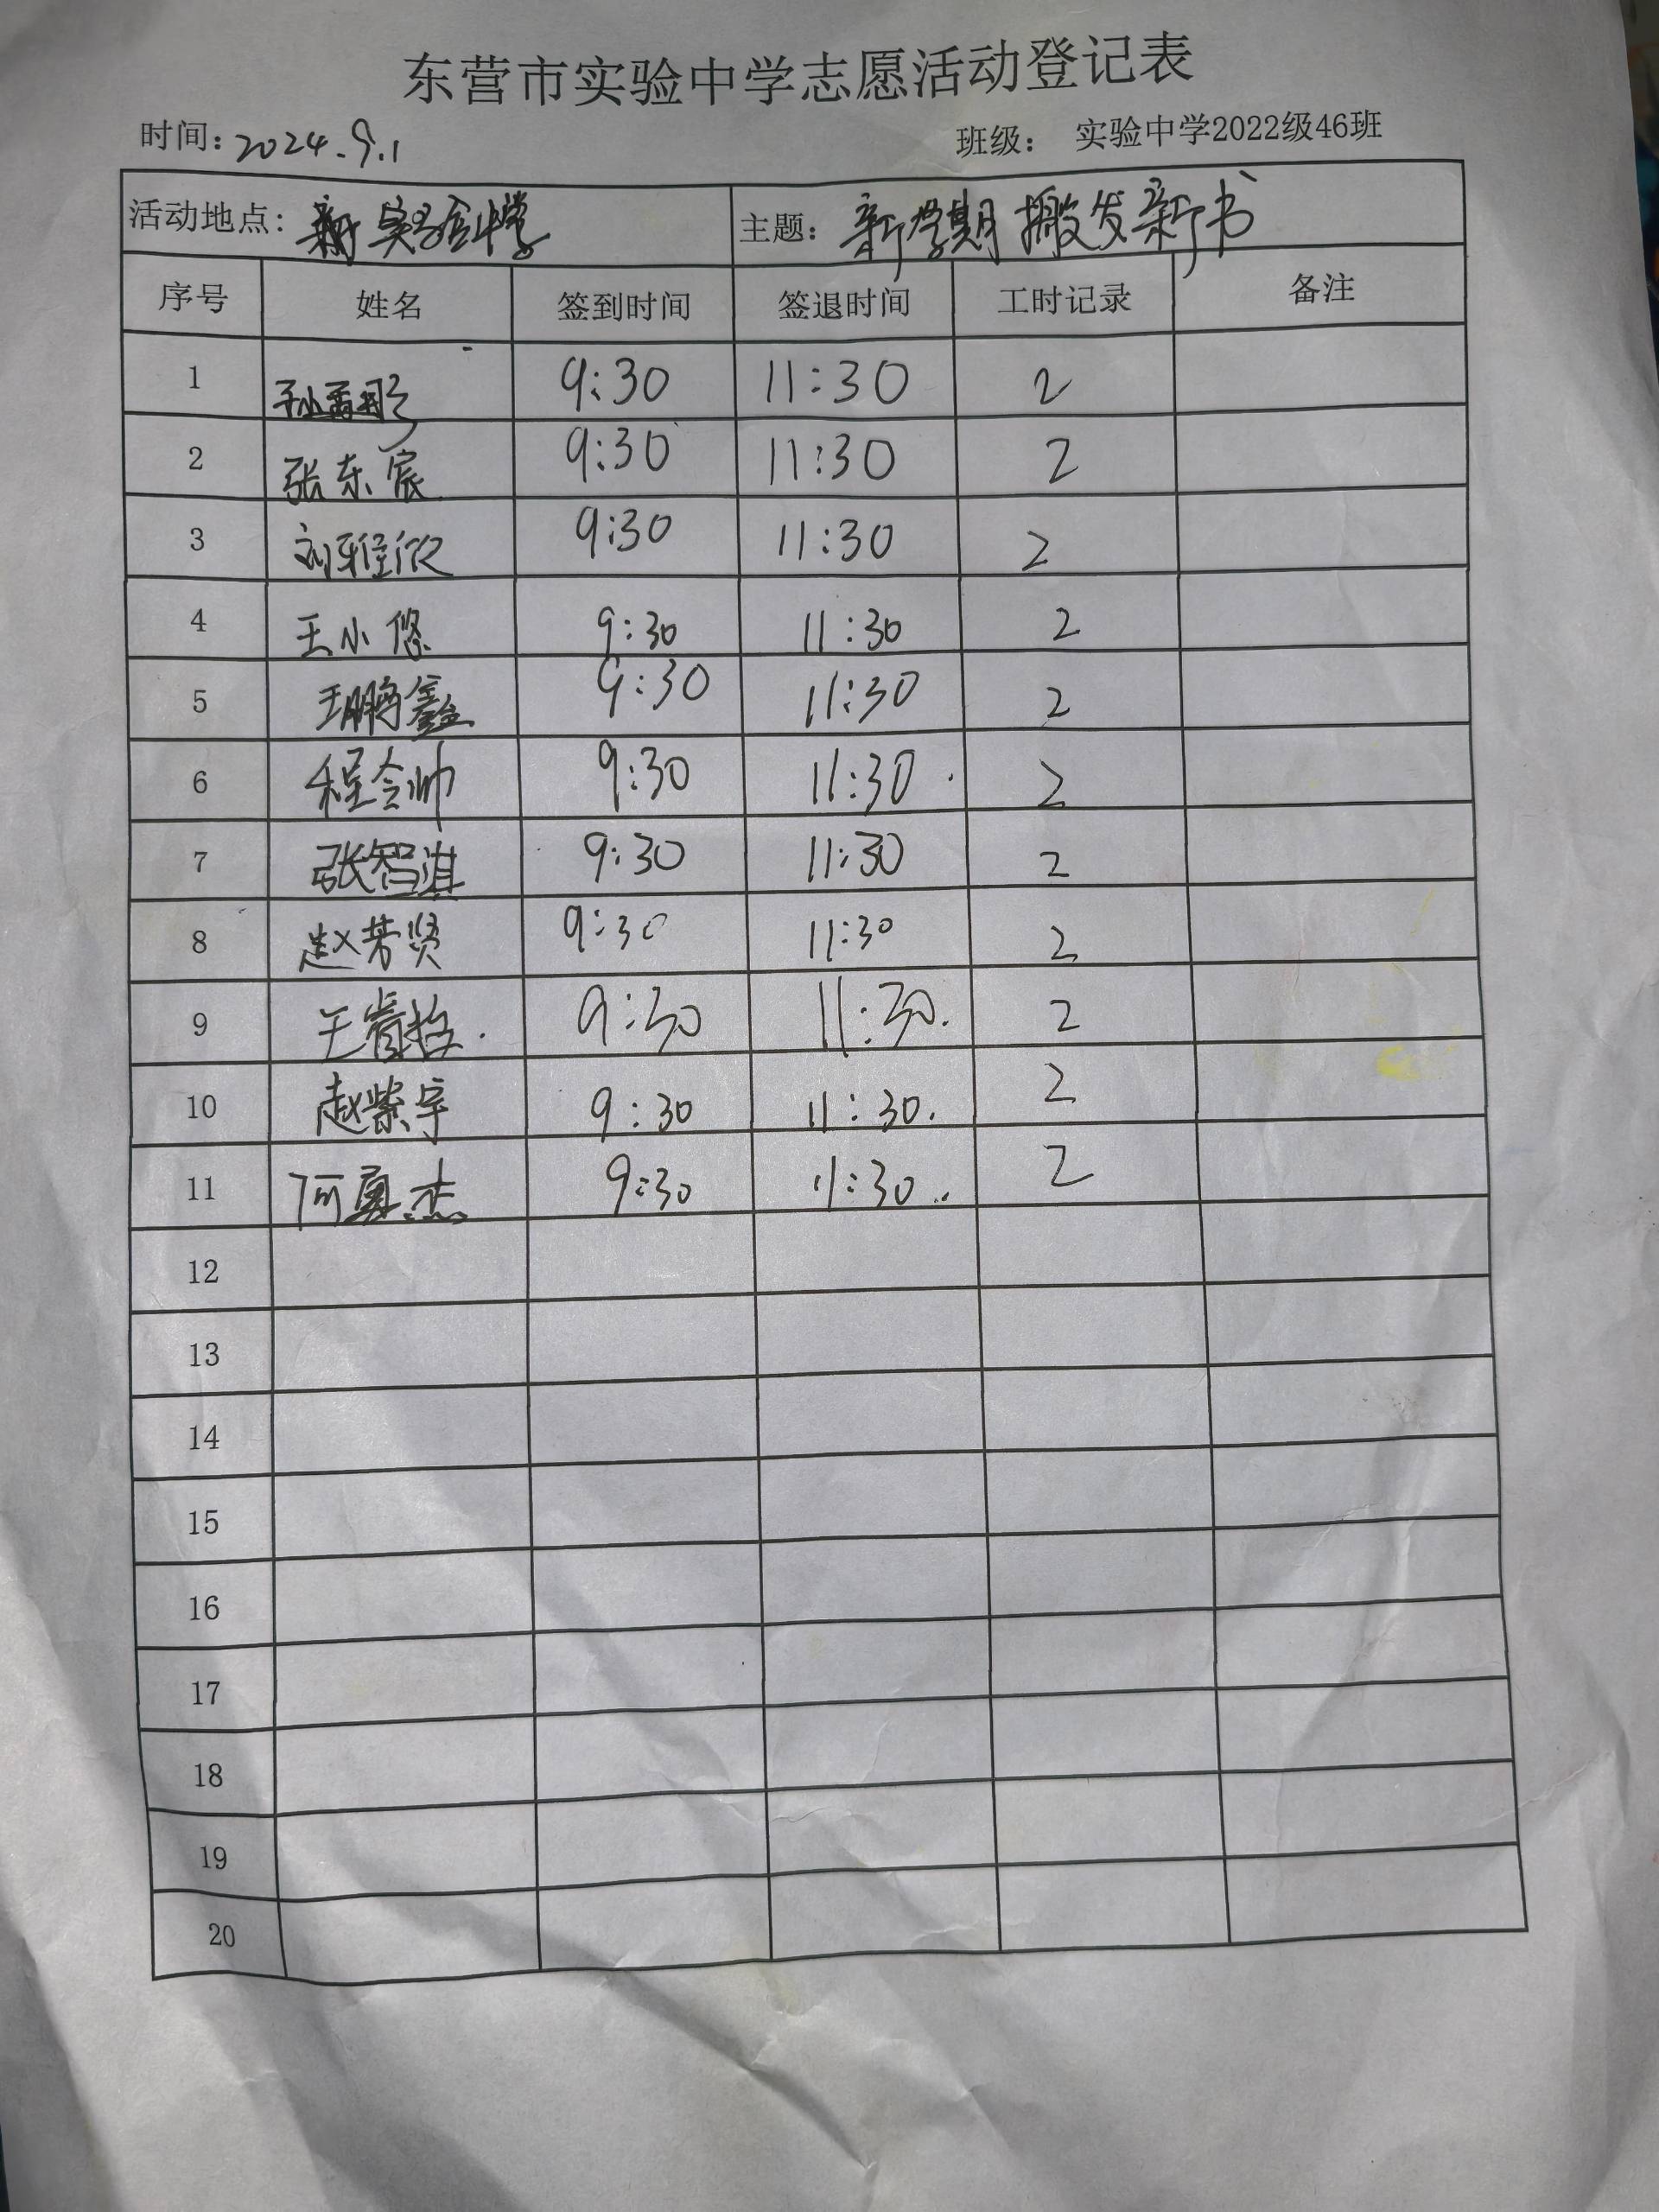 东营市实验中学志愿活动登记表
时间：2024.9.1 班级： 实验中学2022级46班
活动地点： 新实验中学 主题： 新学期搬发新书
序号 姓名 签到时间 签退时间 工时记录 备注
1 9:30 11:30 2
2 张东宸 9:30 11:30 2
3 刘雅欣 9:30 11:30 2
4 王小悠 9:30 11:30 2
5 王鹏鑫 9:30 11:30 2
6 程令帅 9:30 11:30 2
7 张智淇 9:30 11:30 2
8 赵若贤 9:30 11:30 2
9 王 9:30 11:30. 2
10 赵紫宇 9:30 11:30. 2
11 何勇杰 9:30 11:30.. 2
12
13
14
15
16
17
18
19
20